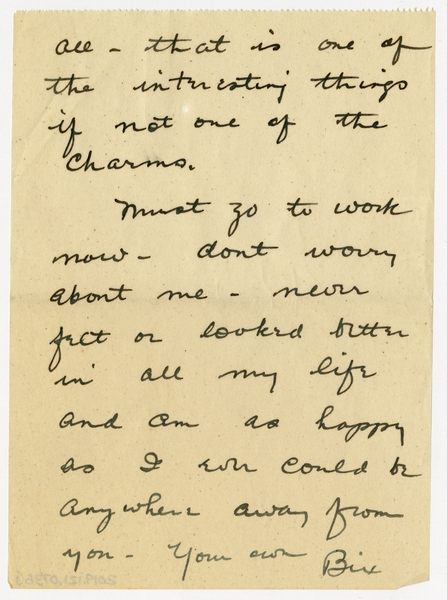 all - that is one of
the interesting things
if not one of the
charms.
Must go to work
now - dont worry
about me - never
felt or looked better
in all my life
and am as happy
as I ever could be
anywhere away from
you - Your own
Bix